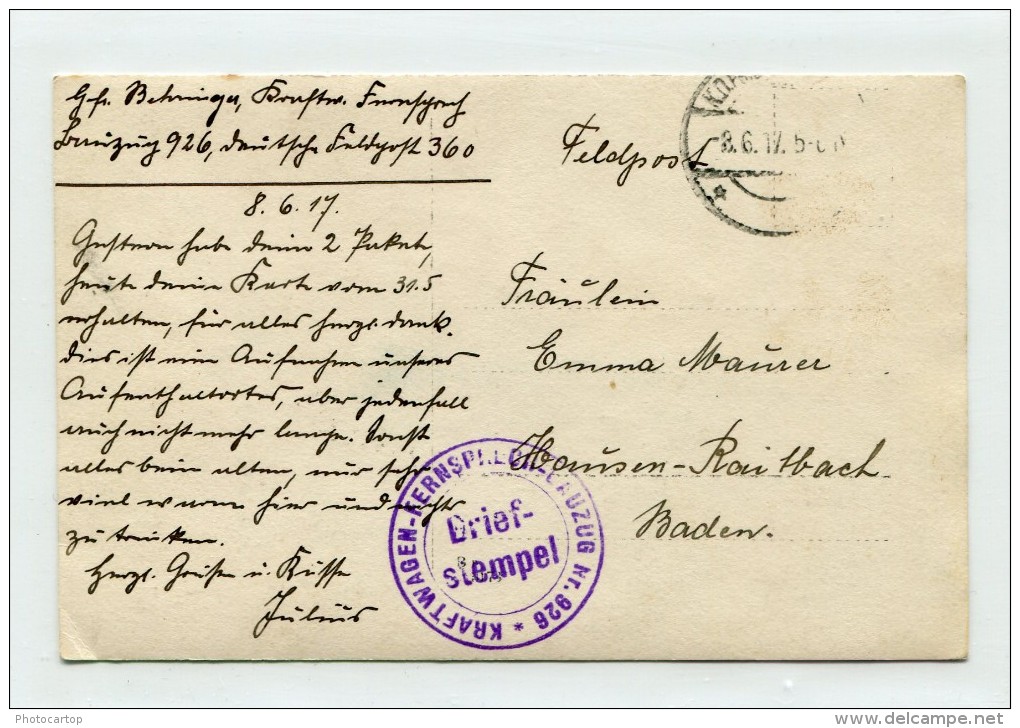 Gfr. Behringer, Kraftw. Fernsprech
Bauzug 926, deutsche Feldpost 360
8. 6. 17.
Gestern habe deine 2 Pakete,
heute deine Karte vom 31.5
erhalten, für alles herzl. dank.
dies ist eine Aufnahme unseres
Aufenthaltortes, aber jedenfall
auch nicht mehr lange. Sonst
alles beim alten, nur sehr
viel warm hier und nichts
zu trinken.
Herzl. Grüsse u. Küsse
Julius
Feldpost
8.6.17. 5-6
Fräulein
Emma Maurer
Hausen-Raitbach
Baden.
KRAFTWAGEN-FERNSPRECH-BAUZUG Nr. 926 *
Brief-
stempel
Photocartop
www.delcampe.net